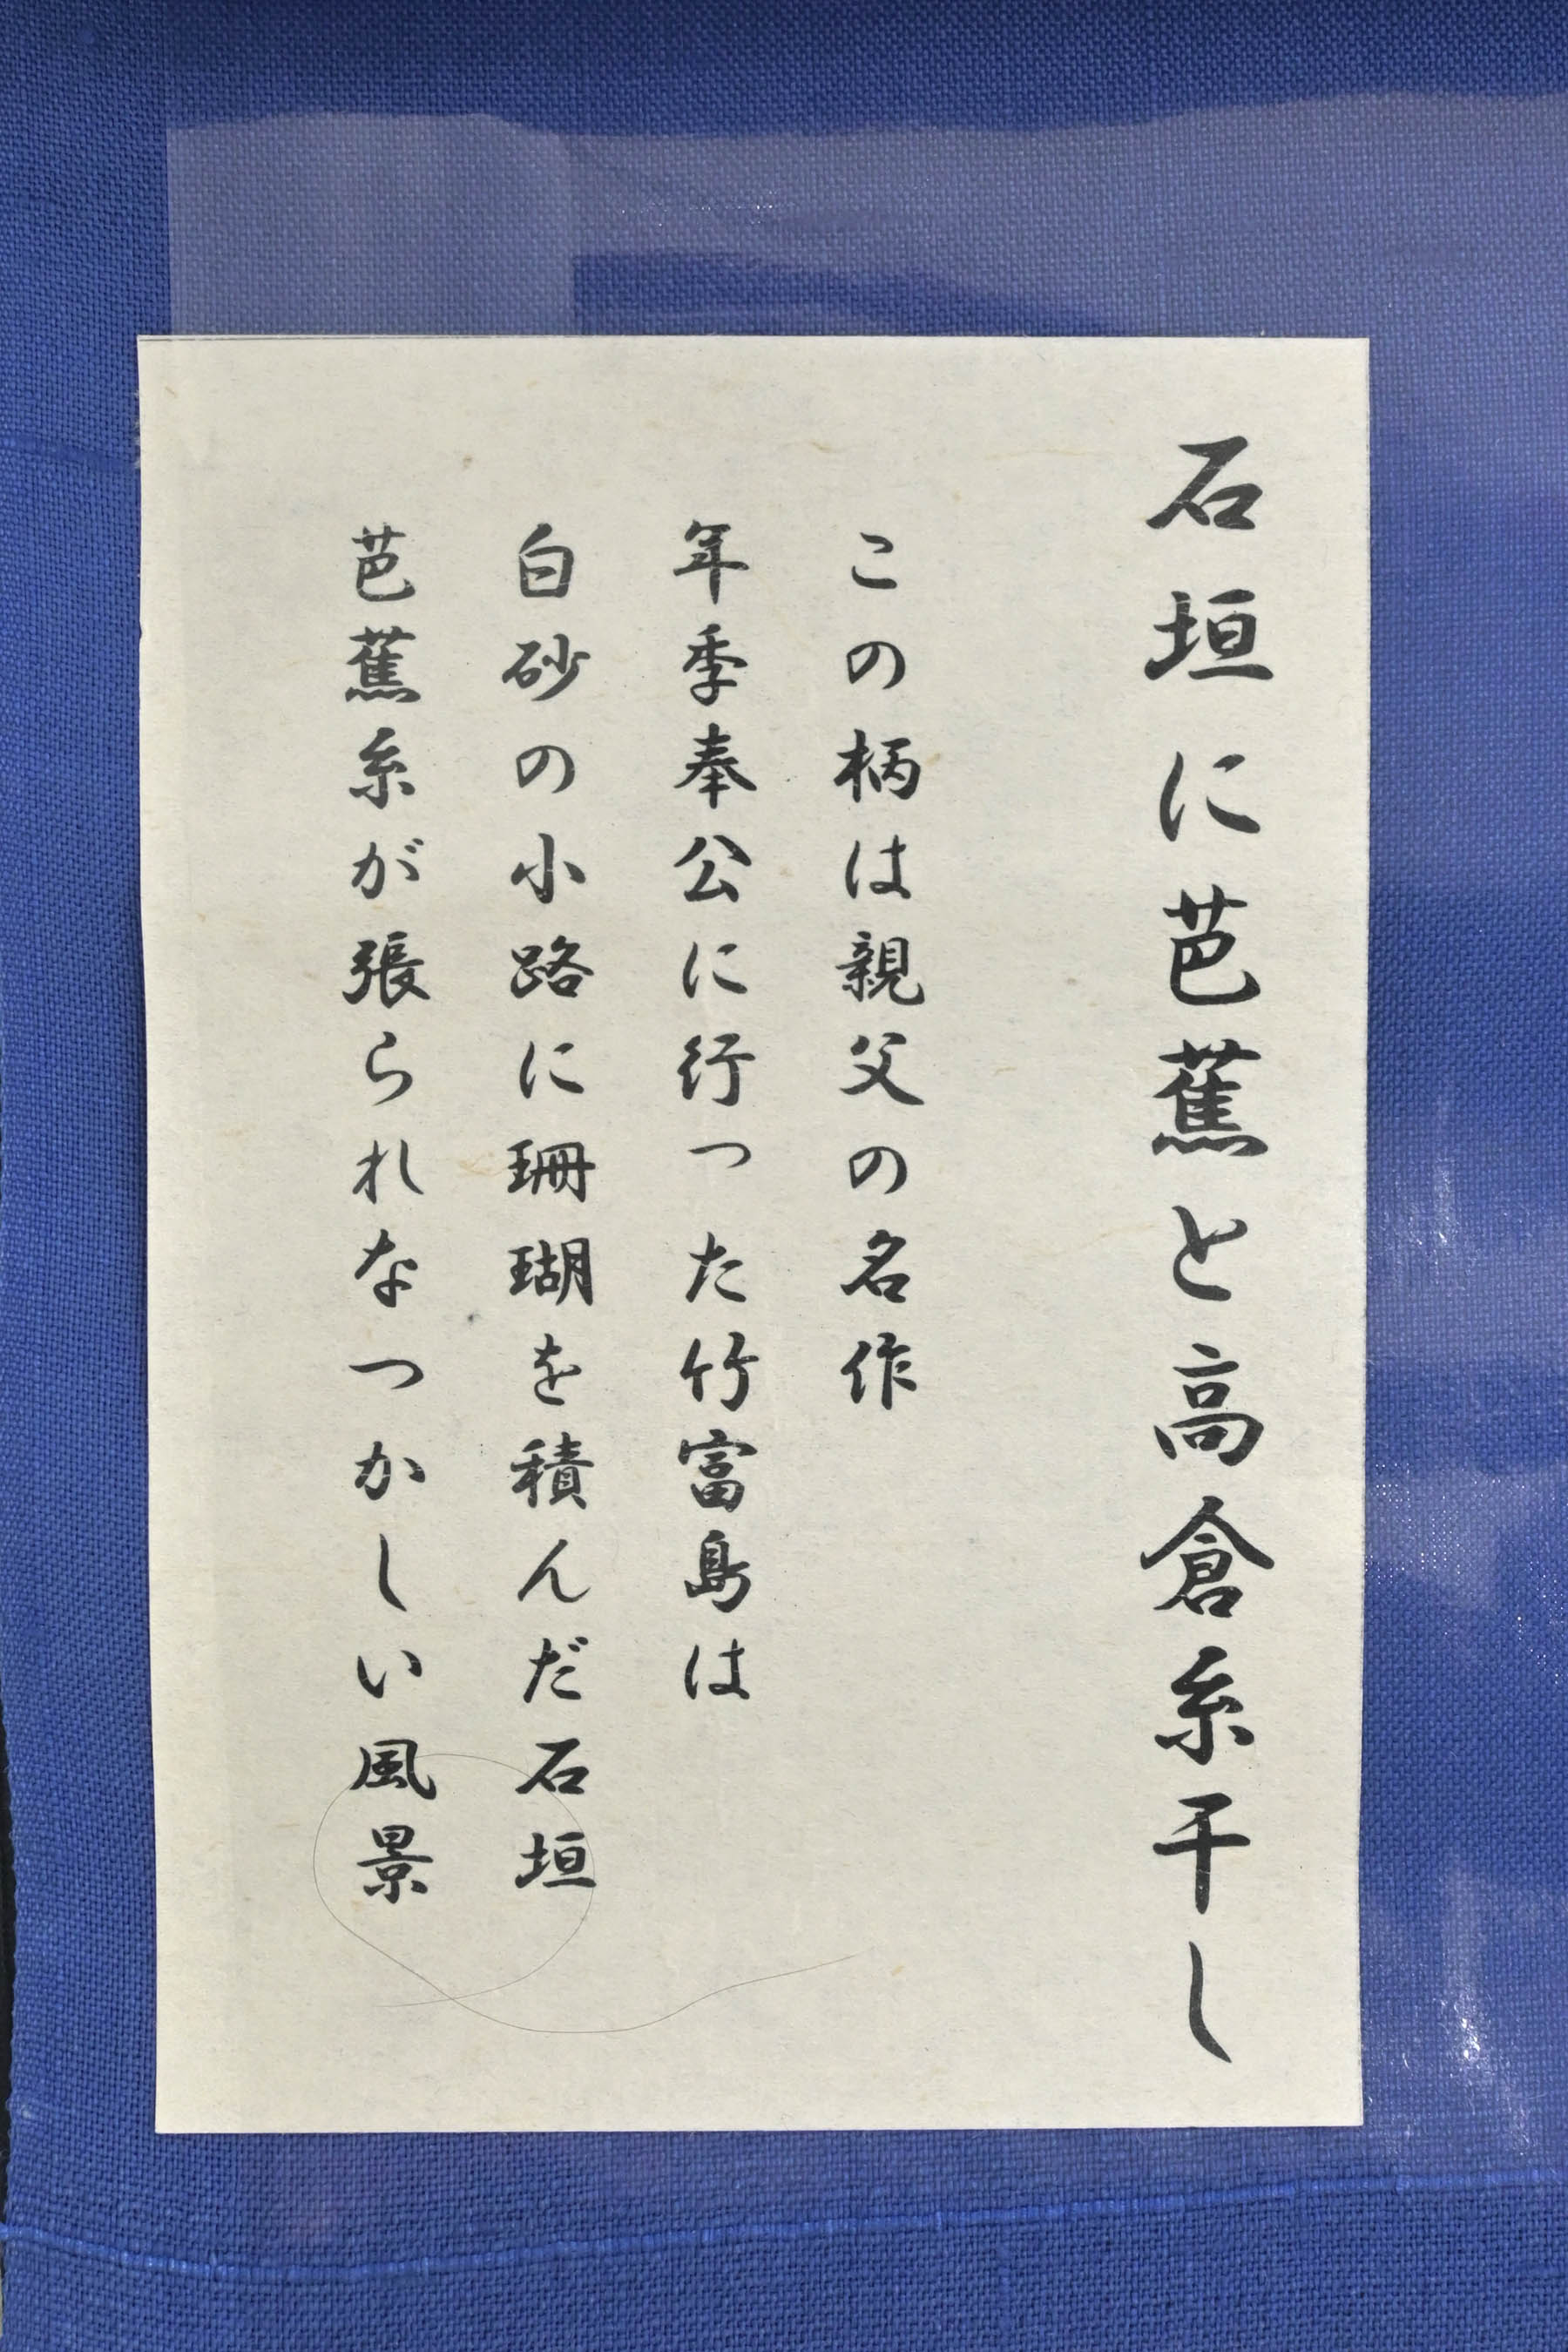 石垣に芭蕉と高倉糸干し
この柄は親父の名作
年季奉公に行った竹富島は
白砂の小路に珊瑚を積んだ石垣
芭蕉糸が張られなつかしい風景